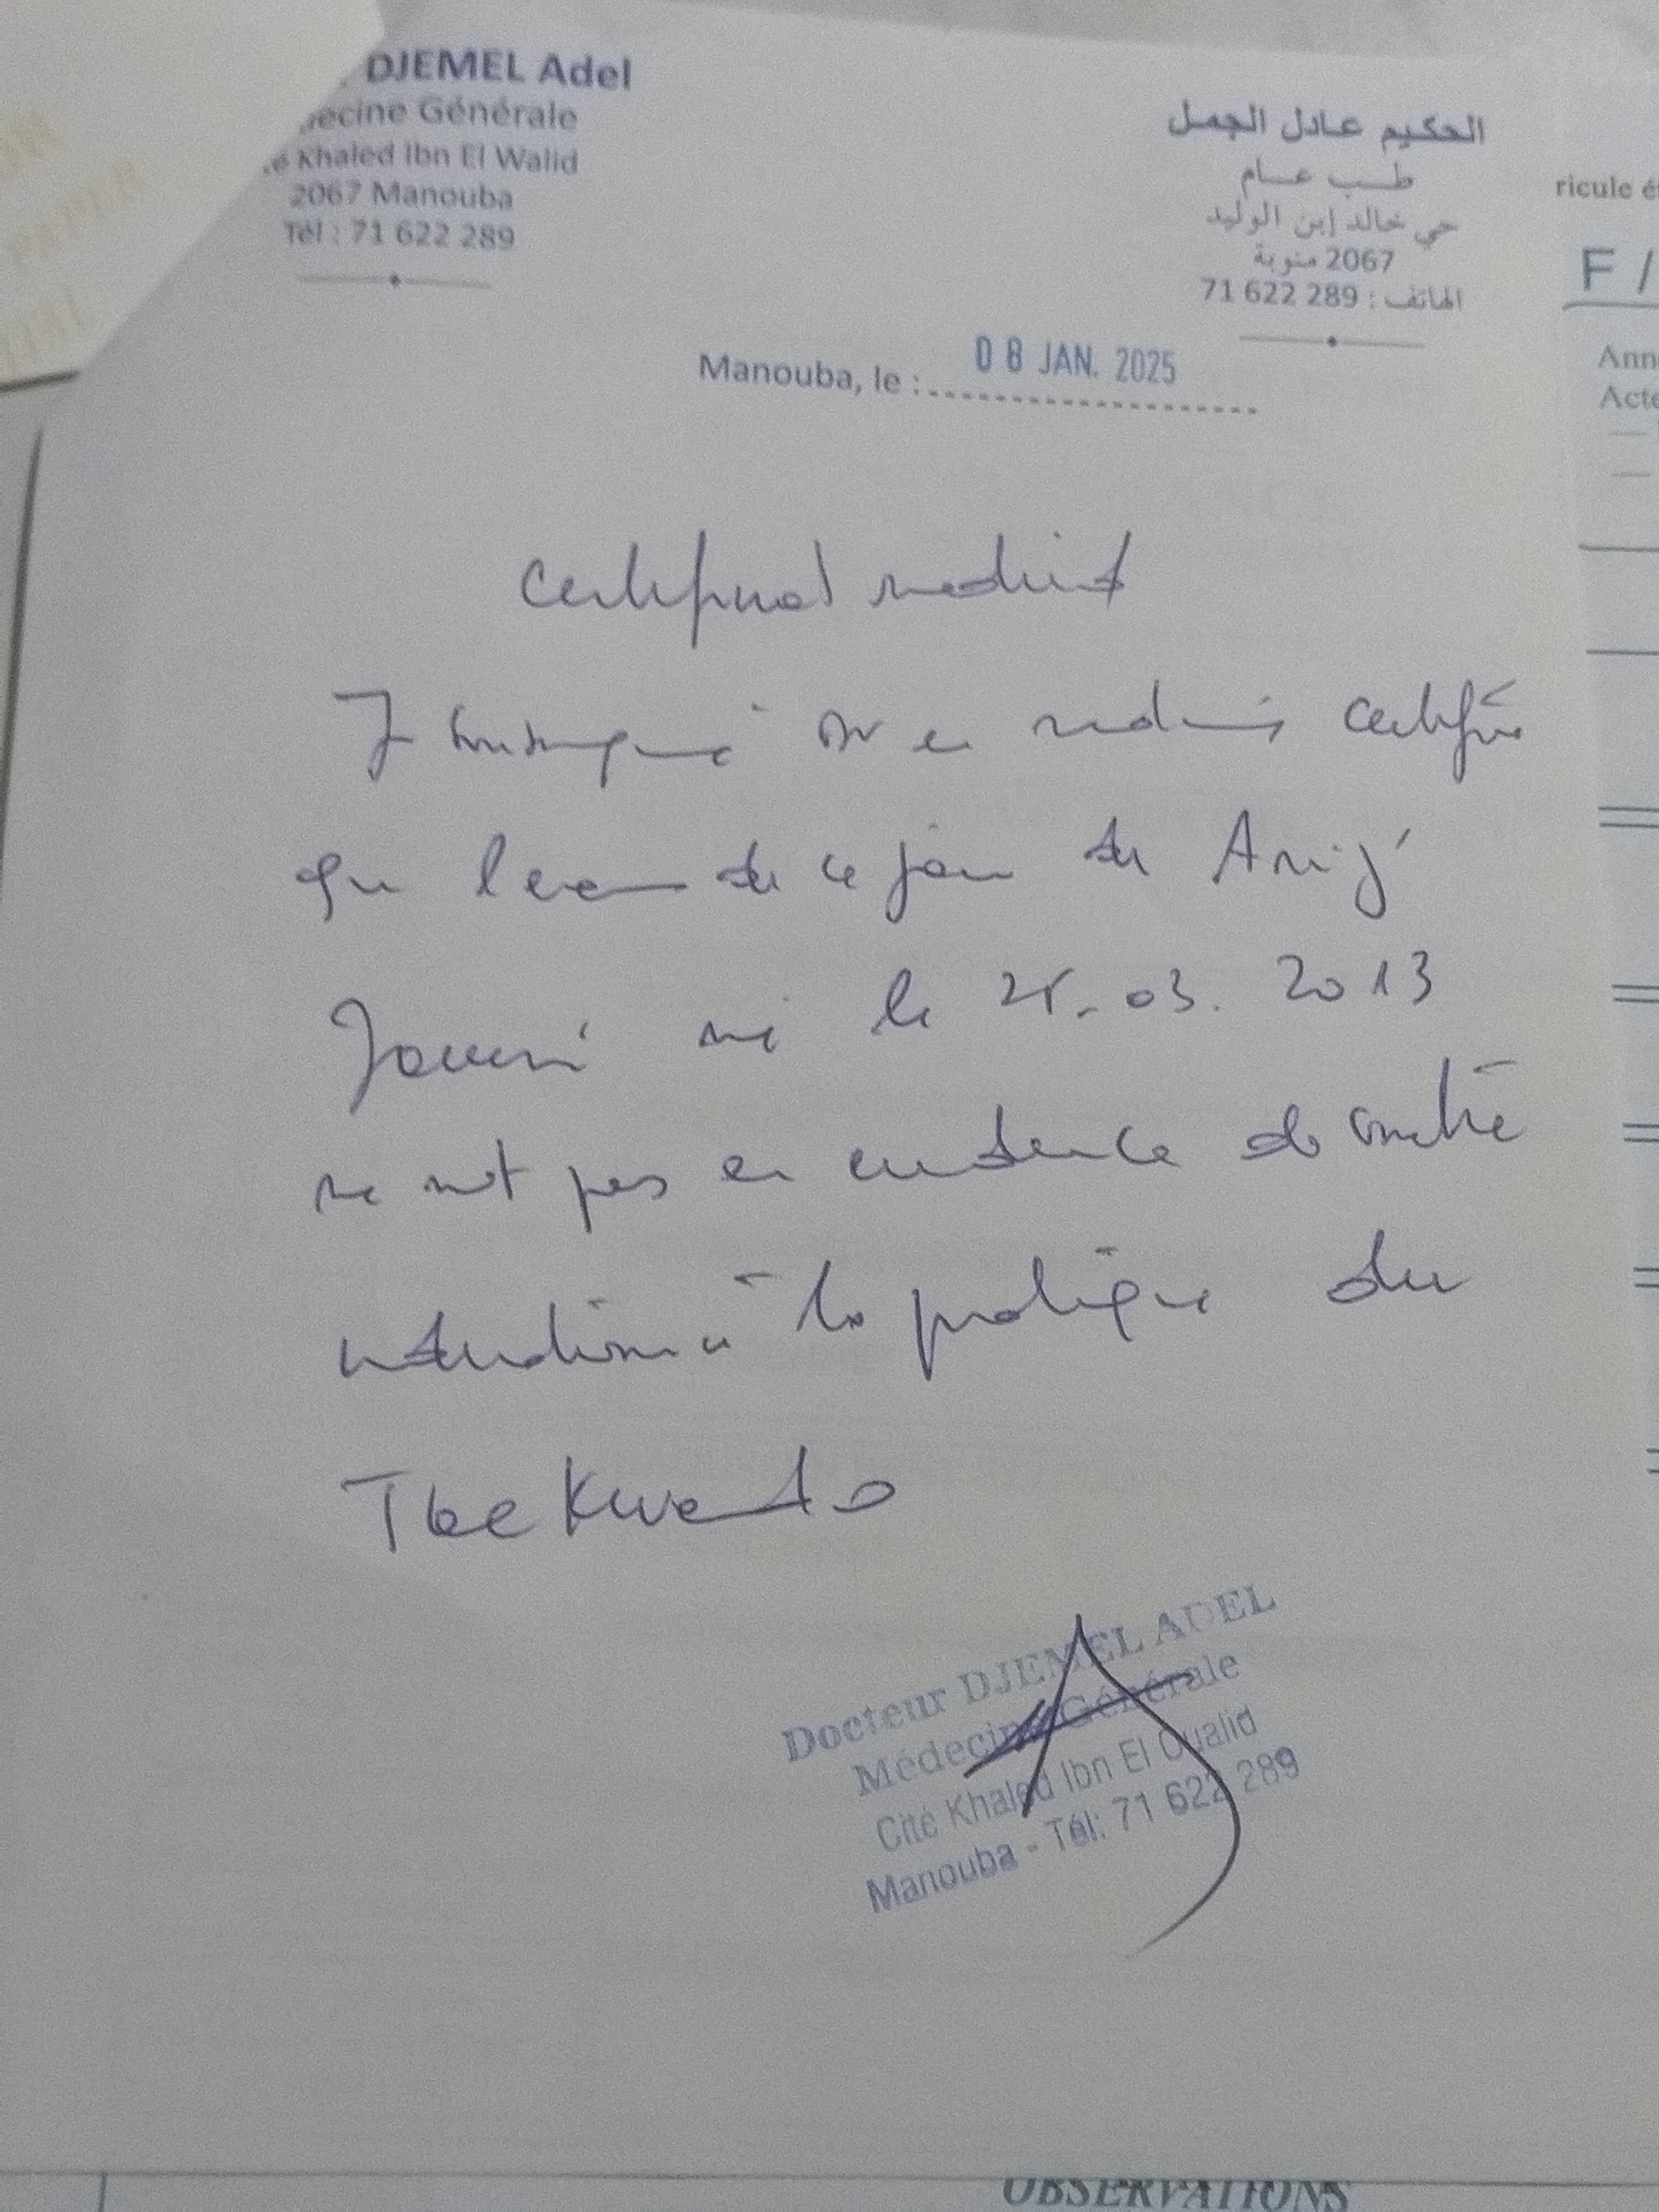 DJEMEL Adel
ecine Générale
é Khaled Ibn El Walid
2067 Manouba
Tél : 71 622 289
الحكيم عادل الجمل
طب عام
حي خالد إبن الوليد
2067 منوبة
الهاتف : 289 622 71
ricule é
F /
Ann
Acte
Manouba, le : 08 JAN. 2025
Certificat medical
Je soussigné Dr en medecine certifie
que l'examen de ce jour de Arij
né le 25.03.2013
ne met pas en evidence de contre
indication à la pratique du
TaeKwendo
Docteur DJEMEL ADEL
Médecine Générale
Cité Khaled Ibn El Oualid
Manouba - Tél: 71 622 289
OBSERVATIONS